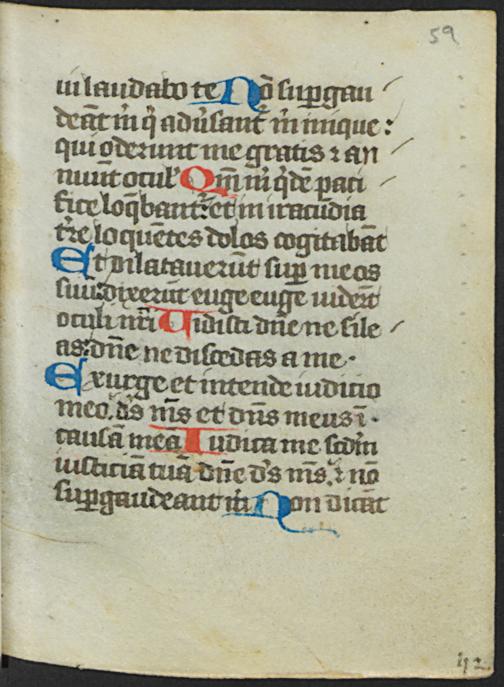 59
ui laudabo te Nō sup̱gau
deāt m̄ q̄ adu̓sant᷑ m̄ inique:
qui oderunt me gratis ⁊ an
nuūt oculꝭ Qm̄ m̄ q̓dē paci
fice loq̄bant᷑: et in iracūdia
tr̄e loquētes dolos cogitabāt
Et dilatauerūt sup̱ meos
suū: dixerūt euge euge uider̄t
oculi nr̄i Uidisti dn̄e ne sile
as: dn̄e ne discedas a me·
Exurge et intende iudicio
meo. ds̄ m̄s et dn̄s meus ī·
causā meā Iudica me scd̄m
iusticiā tuā dn̄e ds̄ m̄s. ⁊ nō
sup̱gaudeant m̄ Non dicāt